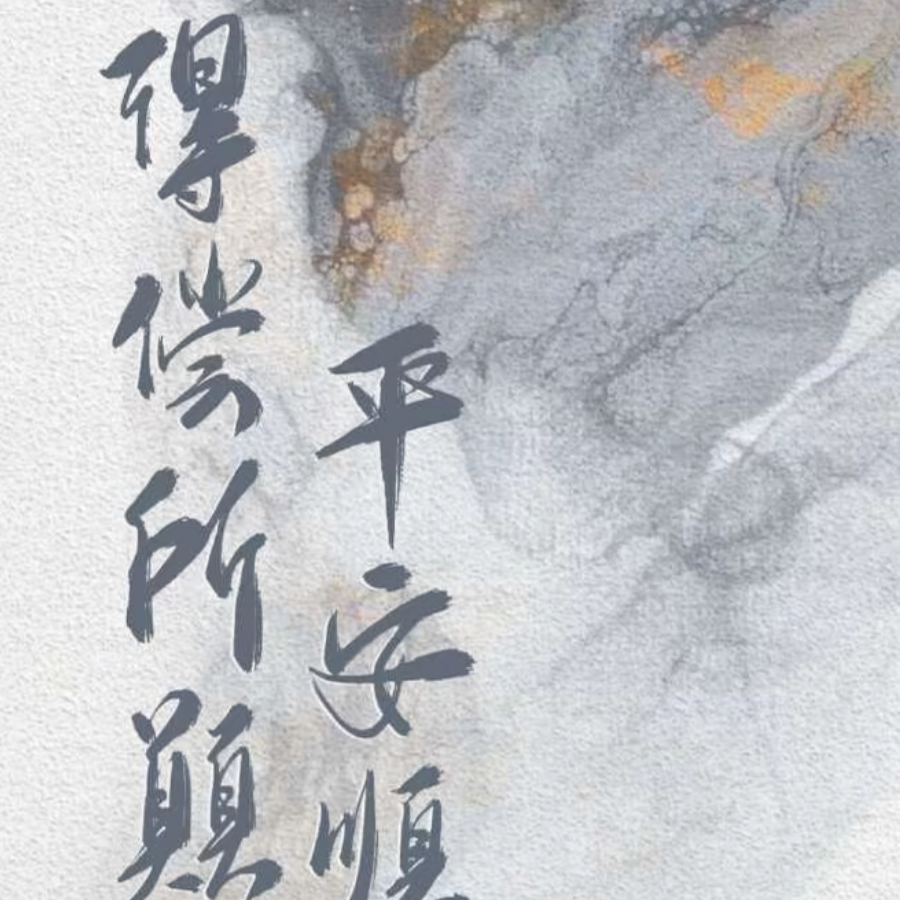 平安順
得偿所願